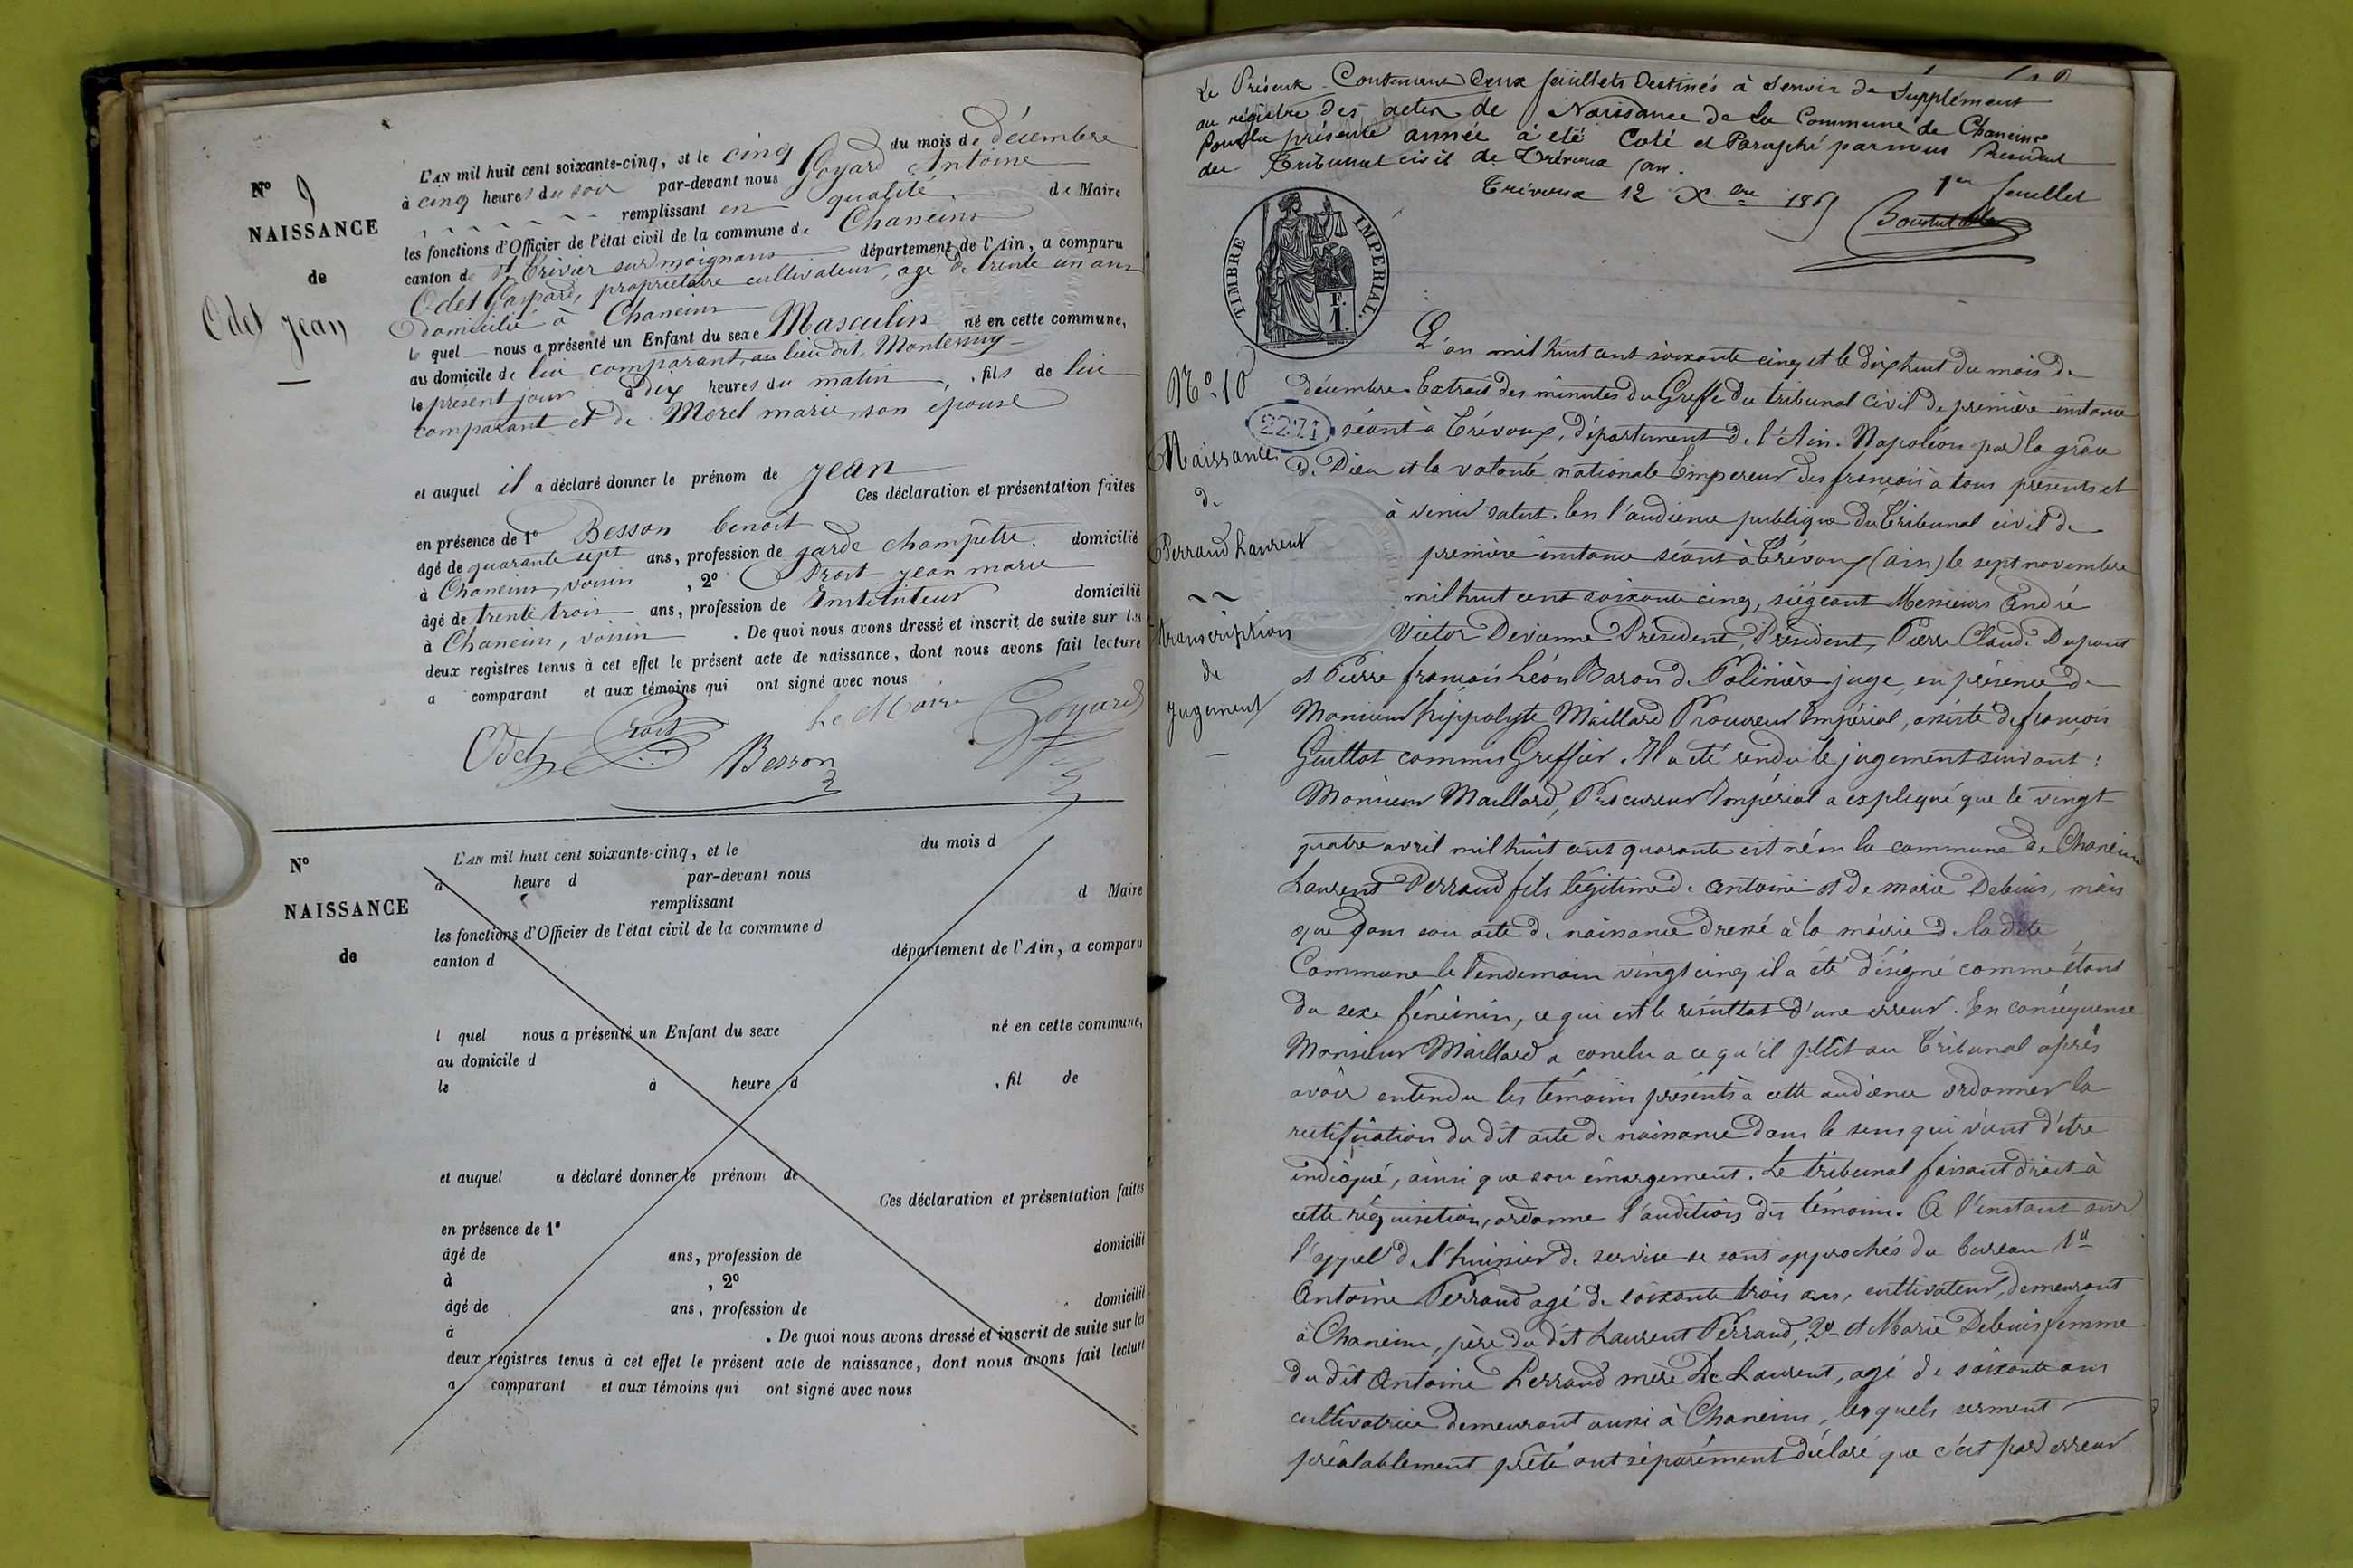 N° 9
NAISSANCE
de
Odet Jean
L'AN mil huit cent soixante-cinq, et le cinq du mois de décembre
à cinq heures du soir par-devant nous Goyard Antoine
remplissant en qualité de Maire
les fonctions d'Officier de l'état civil de la commune de Chaneins
canton de St Trivier sur moignans département de l'Ain, a comparu
Odet Gaspard, propriétaire cultivateur, agé de trente un ans
domicilié à Chaneins
le quel nous a présenté un Enfant du sexe Masculin né en cette commune,
au domicile de lui comparant, au lieu dit, Montessuy
le present jour à dix heures du matin, fils de lui
comparant et de Morel marie, son epouse
et auquel il a déclaré donner le prénom de Jean
Ces déclaration et présentation faites
en présence de 1° Besson benoit
âgé de quarante sept ans, profession de garde champêtre. domicilié
à Chaneins, voisin, 2° Prost jean marie
âgé de trente trois ans, profession de Instituteur domicilié
à Chaneins, voisin. De quoi nous avons dressé et inscrit de suite sur les
deux registres tenus à cet effet le présent acte de naissance, dont nous avons fait lecture
a comparant et aux témoins qui ont signé avec nous
Odet Prost Besson Le Maire Goyard
N°
NAISSANCE
de
L'AN mil huit cent soixante-cinq, et le du mois d
à heure d par-devant nous
remplissant d Maire
les fonctions d'Officier de l'état civil de la commune d
canton d département de l'Ain, a comparu
l quel nous a présenté un Enfant du sexe né en cette commune,
au domicile d
le à heure d , fil de
et auquel a déclaré donner le prénom de
Ces déclaration et présentation faites
en présence de 1°
âgé de ans, profession de domicilié
à , 2°
âgé de ans, profession de domicilié
à . De quoi nous avons dressé et inscrit de suite sur les
deux registres tenus à cet effet le présent acte de naissance, dont nous avons fait lecture
a comparant et aux témoins qui ont signé avec nous
Le Présent Contenant deux feuillets destinés à servir de Supplément
au régistre des actes de Naissance de la Commune de Chaneins
pour la présente année a été Coté et Paraphé par nous Président
du Tribunal civil de Trévoux
Trévoux 12 Xbre 1865
1er feuillet
TIMBRE IMPERIAL.
F. I.
N°. 10
2271
Naissance
de
Perraud Laurent
transcription
de
jugement
L'an mil huit cent soixante cinq et le dix huit du mois de
décembre. Extrait des minutes du Greffe du tribunal civil de première instance
séant à Trévoux, département de l'Ain. Napoléon par la grâce
de Dieu et la volonté nationale Empereur des français à tous présents et
à venir salut. En l'audience publique du Tribunal civil de
première instance séant à Trévoux (ain) le sept novembre
mil huit cent soixante cinq, siégeant Messieurs André
Victor Devienne Président, Président, Pierre Claude Dupont
et Pierre françois Léon Baron de Polinière juge, en présence de
Monsieur hippolyte Maillard Procureur Impérial, assisté de françois
Guillot commis Greffier. Il a été rendu le jugement suivant :
Monsieur Maillard, Procureur Impérial a expliqué que le vingt
quatre avril mil huit cent quarante est né en la commune de Chaneins
Laurent Perraud fils légitime de Antoine et de marie Debuis, mais
que dans son acte de naissance dressé à la mairie de la dite
Commune le lendemain vingt cinq il a été désigné comme étant
du sexe féminin, ce qui est le résultat d'une erreur. En conséquence
Monsieur Maillard a conclu a ce qu'il plût au Tribunal après
avoir entendu les témoins présents à cette audience ordonner la
rectification du dit acte de naissance dans le sens qui vient d'être
indiqué, ainsi que son émargement. Le tribunal faisant droit à
cette réquisition, ordonne l'audition des témoins. A l'instant sur
l'appel de l'huissier de service se sont approchés du bureau 1°
Antoine Perraud agé de soixante trois ans, cultivateur, demeurant
à Chaneins, père du dit Laurent Perraud, 2° et Marie Debuis femme
du dit Antoine Perraud mère de Laurent, agé de soixante ans
cultivatrice demeurant aussi à Chaneins, lesquels serment
préalablement prêté ont séparément déclaré que c'est par erreur